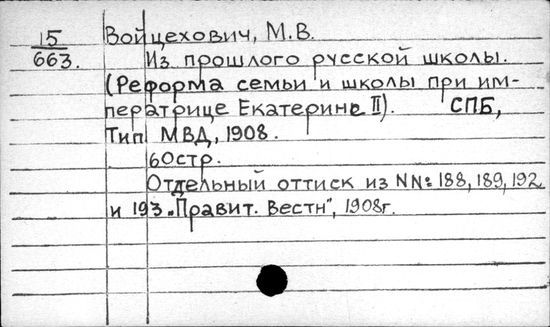 15 Войцехович, М.В.
663. Из прошлого русской школы.
(Реформа семьи и школы при им-
ператрице Екатерине II). СПБ,
Тип МВД, 1908.
60стр.
Отдельный оттиск из NN: 188, 189, 192
и 193 „Правит. Вестн", 1908г.